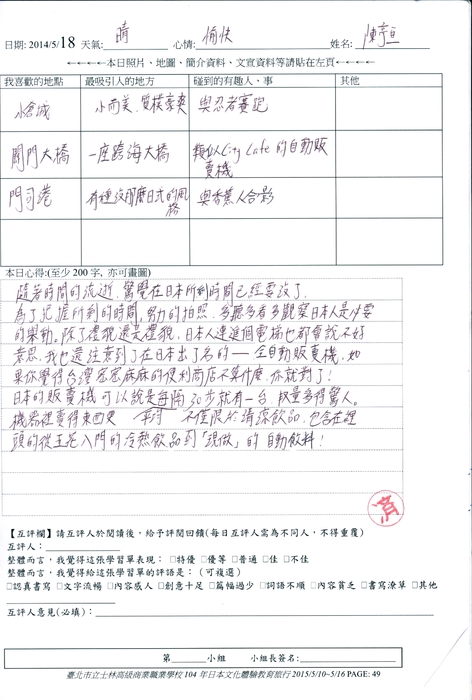 日期: 2014/5/18 天氣: 晴 心情: 愉快 姓名: 陳
←←←←本日照片、地圖、簡介資料、文宣資料等請貼在左頁←←←←
我喜歡的地點 最吸引人的地方 碰到的有趣人、事 其他
小倉城 小而美、質樸豪爽 與忍者賽跑
關門大橋 一座跨海大橋 類似City Cafe的自動販賣機
門司港 有種沒那麼日式的風格 與香蕉人合影
本日心得:(至少 200 字, 亦可畫圖)
隨著時間的流逝,驚覺在日本所剩時間已經要沒了,
為了把握所剩的時間,努力的拍照、多聽多看多觀察日本人是必要
的舉動,除了禮貌還是禮貌,日本人連進個電梯也都會說不好
意思,我也還注意到了在日本出了名的一 全自動販賣機,如
果你覺得台灣密密麻麻的便利商店不算什麼,你就對了!
日本的販賣機可以說是每隔30步就有一台,數量多得驚人。
機器裡賣得東西更 不僅限於清涼飲品,包含在裡
頭的從五花八門的冷熱飲品到「現做」的自動飲料!
済
【互評欄】請互評人於閱讀後,給予評閱回饋(每日互評人需為不同人,不得重覆)
互評人:
整體而言,我覺得這張學習單表現: □特優 □優等 □普通 □佳 □不佳
整體而言,我覺得給這張學習單的評語是: (可複選)
□認真書寫 □文字流暢 □內容感人 □創意十足 □篇幅過少 □詞語不順 □內容貧乏 □書寫潦草 □其他
互評人意見(必填):
第 小組 小組長簽名:
臺北市立士林高級商業職業學校 104 年日本文化體驗教育旅行 2015/5/10~5/16 PAGE: 49